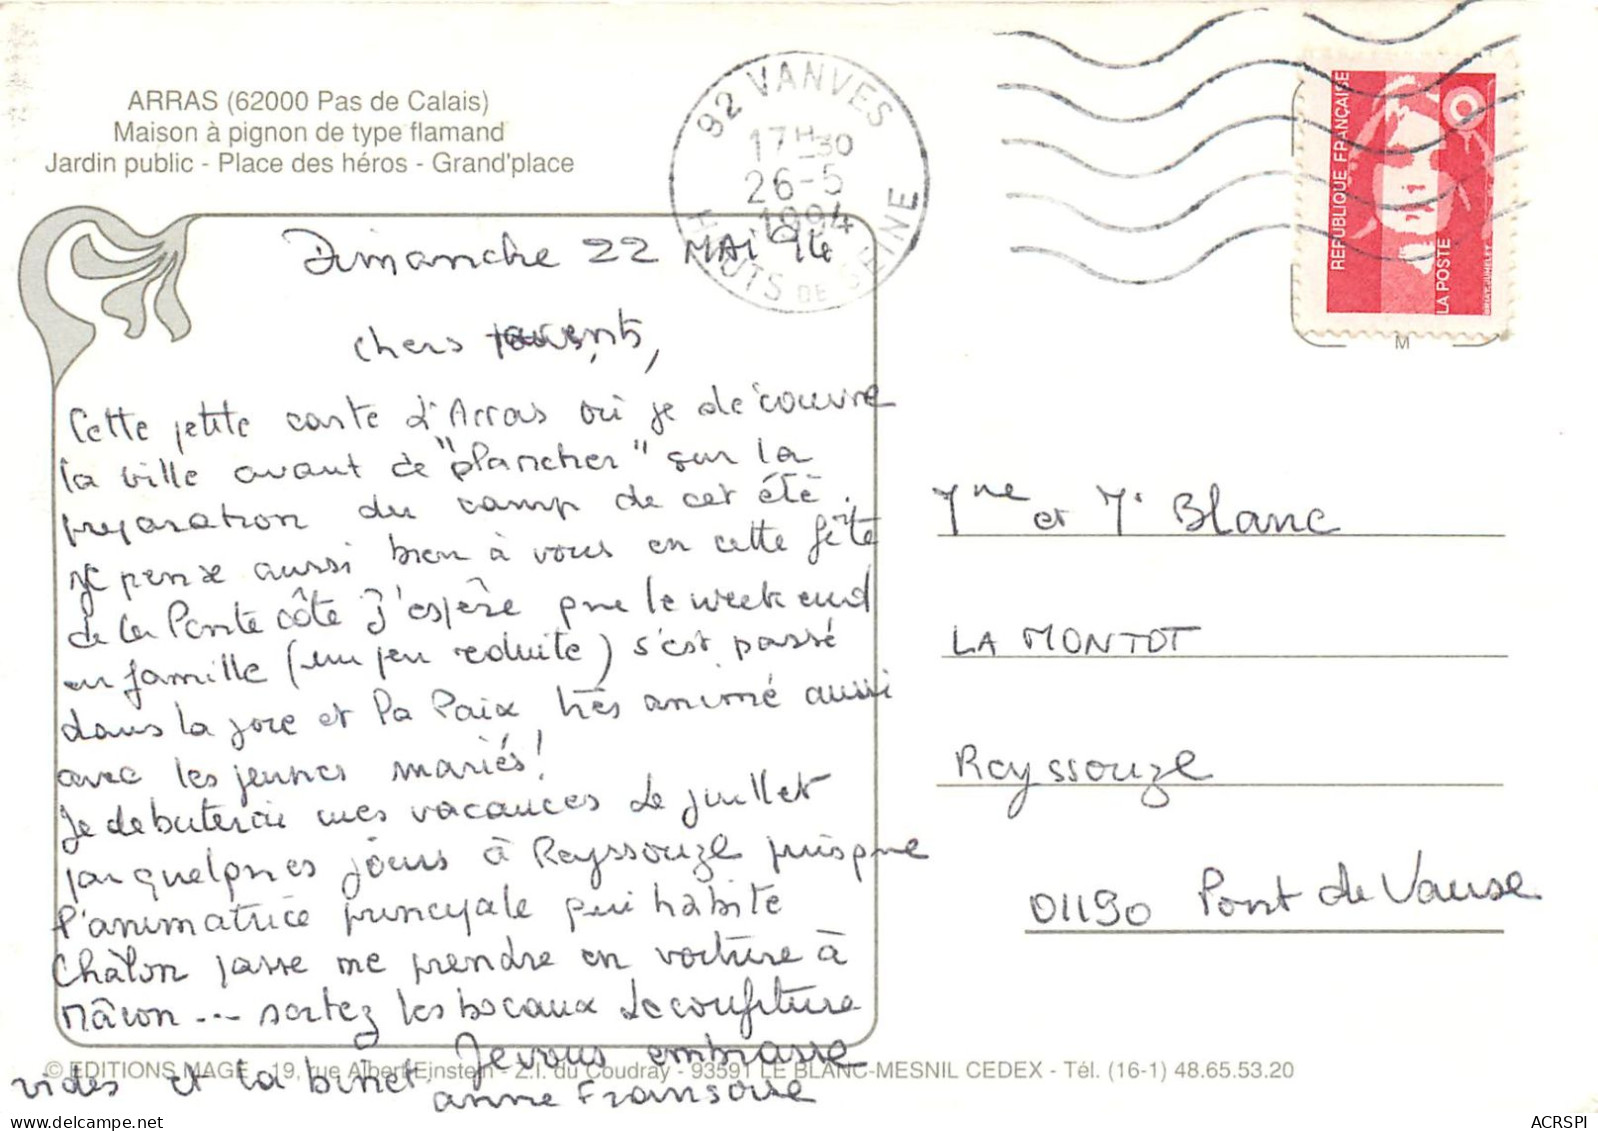 ARRAS (62000 Pas de Calais)
Maison à pignon de type flamand
Jardin public - Place des héros - Grand'place
92 VANVES
17H30
26-5
1994
HAUTS DE SEINE
REPUBLIQUE FRANÇAISE
LA POSTE
BRIAT-JUMELET
M
Dimanche 22 MAI 94
Chers parents,
Cette petite carte d'Arras où je découvre
la ville avant de "plancher" sur la
préparation du camp de cet été.
Je pense aussi bien à vous en cette fête
de la Pentecôte J'espère que le week end
en famille (un peu réduite) s'est passé
dans la joie et la Paix très animé aussi
avec les jeunes mariés!
Je debuterai mes vacances de juillet
par quelques jours à Reyssouze puisque
l'animatrice principale qui habite
Châlon passe me prendre en voiture à
Mâcon... sortez les bocaux de confiture
vides et la binet Je vous embrasse
anne Fransoise
Mme et Mr Blanc
LA MONTOT
Reyssouze
01190 Pont de Vauxse
© EDITIONS MAGE - 19, rue Albert Einstein - Z.I. du Coudray - 93591 LE BLANC-MESNIL CEDEX - Tél. (16-1) 48.65.53.20
ACRSPI